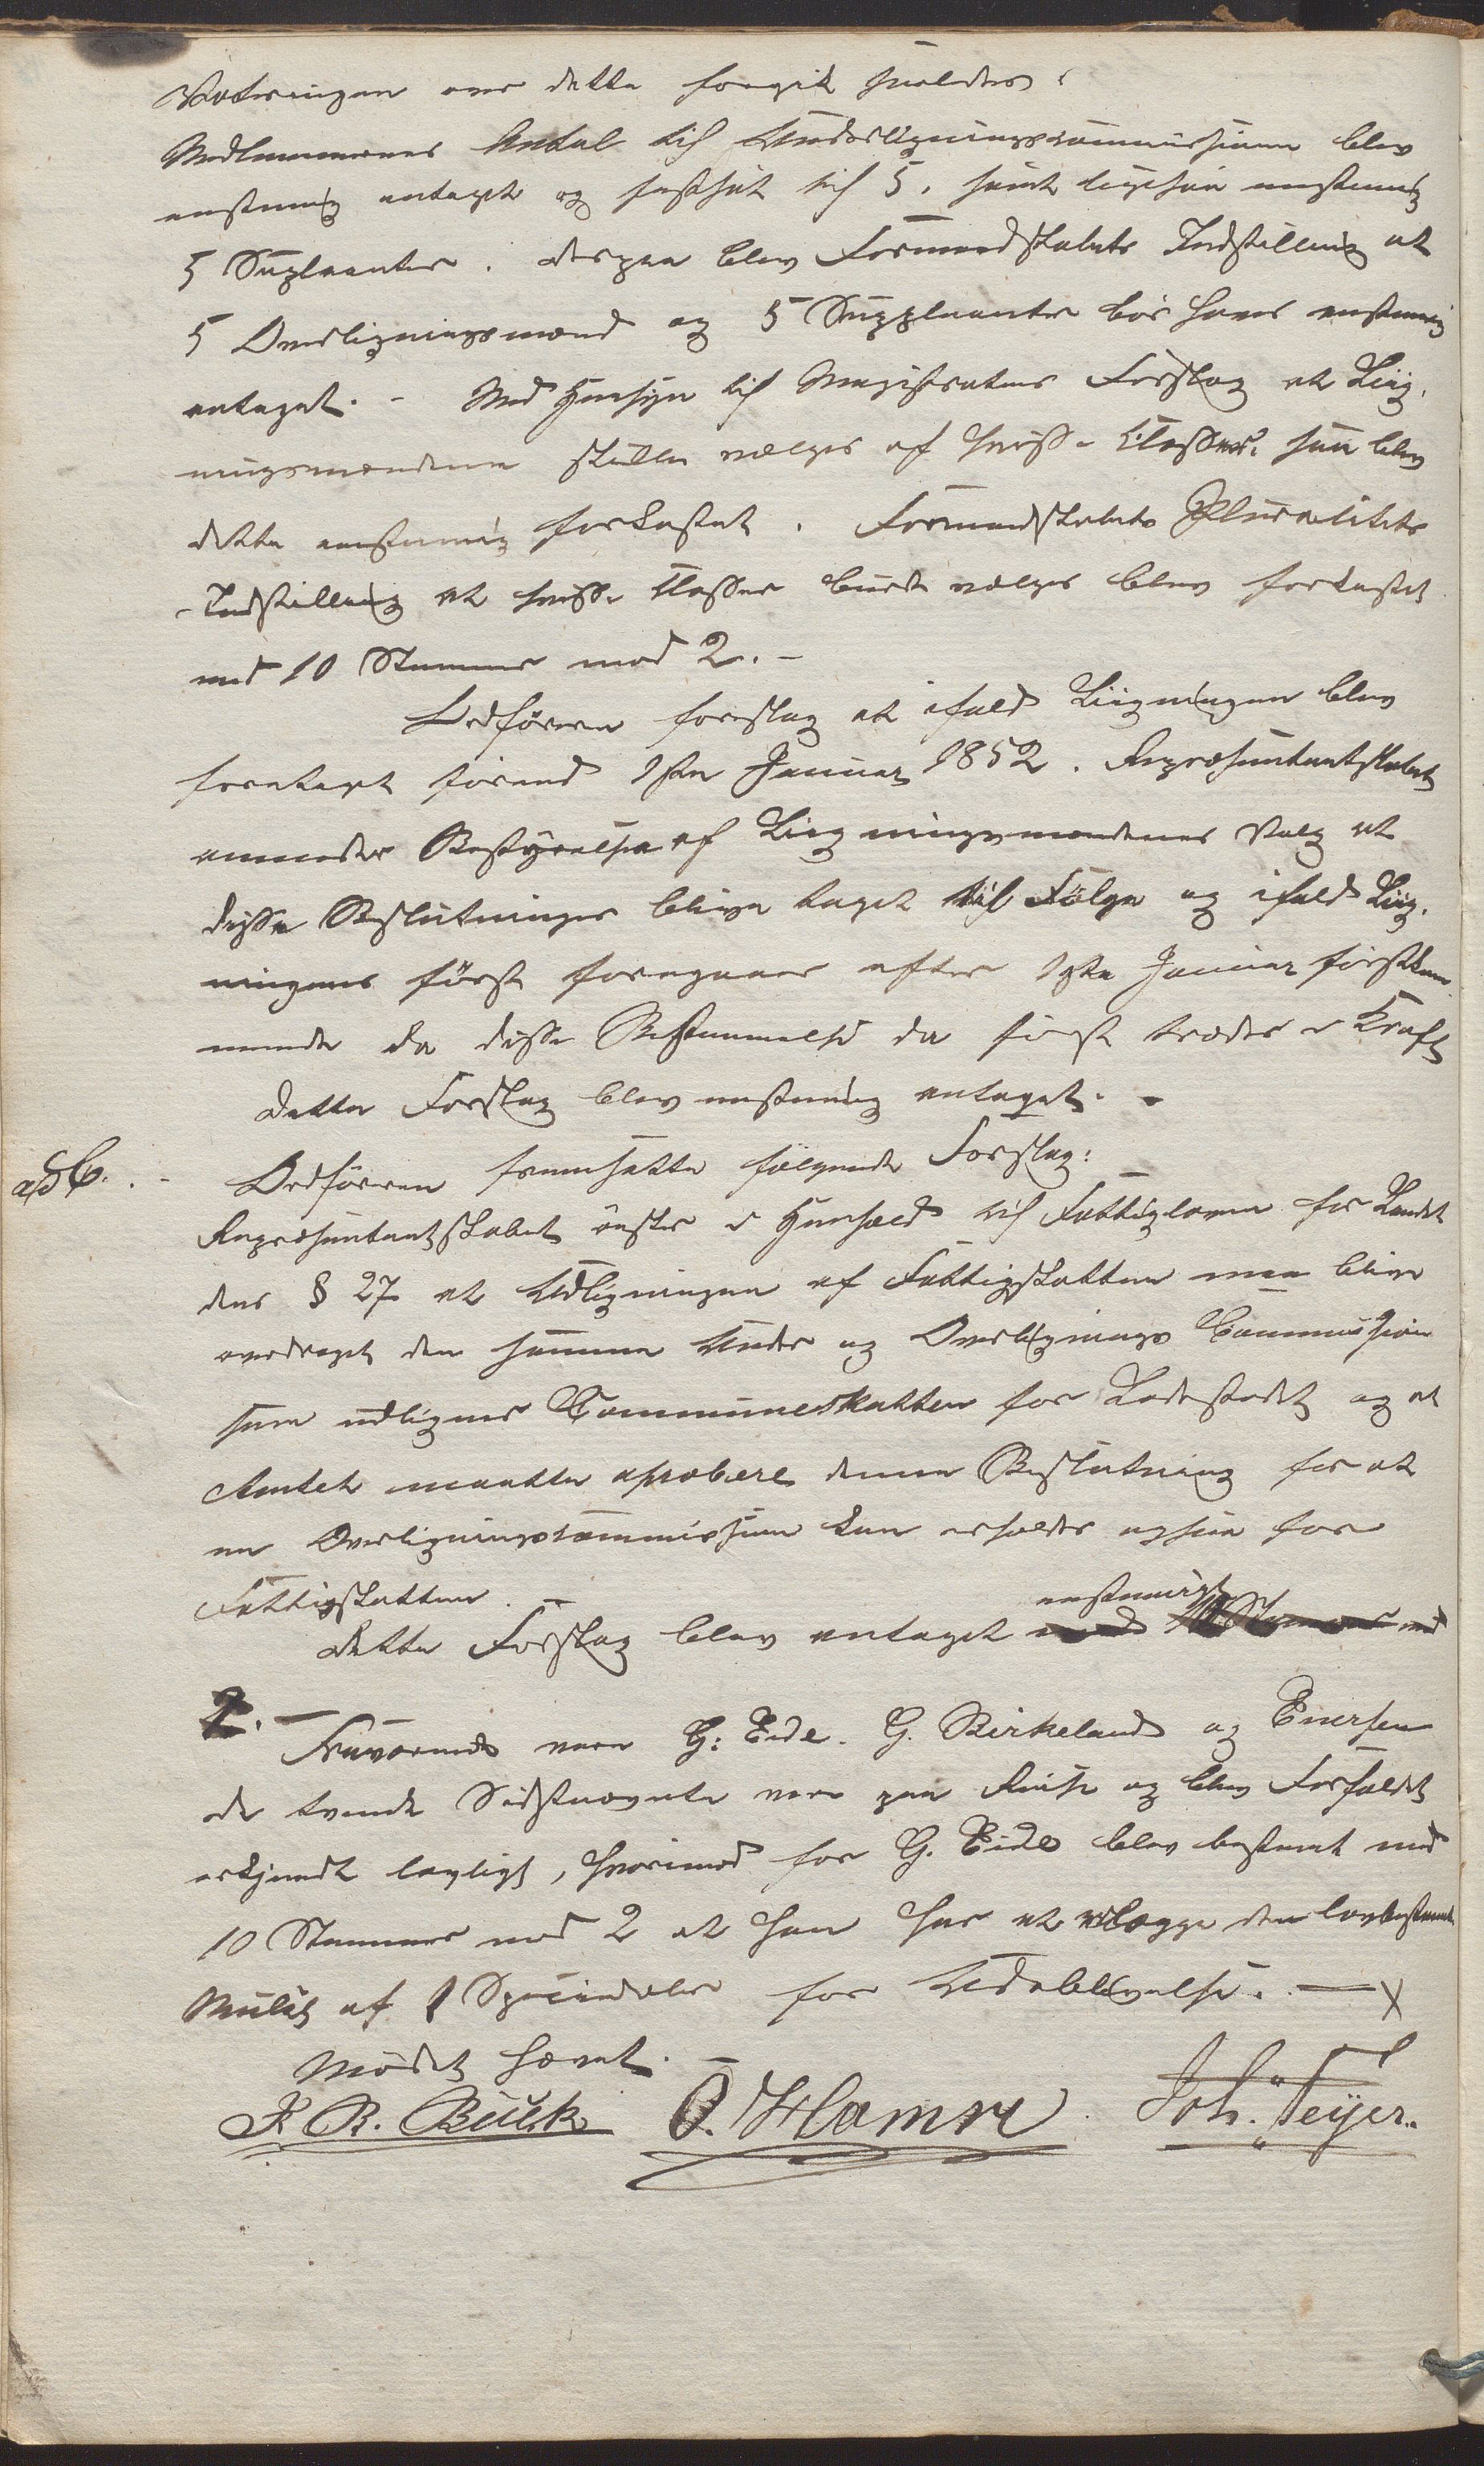 Voteringen over dette foregik saaledes:
Medlemmernes Antal til Underligningscommissionen blev
enstemig antaget og fastsat til 5, samt ligesaa enstemig
5 Supleanter. derpaa blev Formandskabets Indstilling at
5 Overligningsmænd og 5 Suppleanter bør haves enstemig
antaget. - Med Hensyn til Magistratens Forslag at Lig-
ningsmændene skulle vælges af hvisse Classer, saa blev
dette enstemig forkastet. Formandskabets Pluralitets
Indstilling at hvisse Classer burde vælges blev forkastet
med 10 Stemmer mod 2. -
Ordføreren foreslog at ifald Ligningen blev
foretaget førend 1ste Januar 1852. Repræsentantskabet
anmoder Bestyrelsen af Ligningsmændenes Valg at
disse Beslutninger bliver taget til Følge og ifald Lig-
ningens først foregaaer efter 1ste Januar førstkom-
mende da disse Bestemmelser da først træder i Kraft
Dette Forslag blev enstemig antaget. -
ad 6. - Ordføreren fremsatte følgende Forslag:
Repræsentantskabet ønsker i Henhold til Fattigloven for Landet
dens § 27 at Udligningen af Fattigskatten maa blive
overdraget den samme Under og Overlignings Commission
som udligner Communeskatten for Ladestedet og at
Amtet maatte aprobere denne Beslutning for at
en Overligningscommission kan erholdes ogsaa for
Fattigskatten.
Dette Forslag blev antaget enstemigt
2. - Fraværende vare G: Eide. G. Birkeland og Enersen
de tvende Sidstnævnte vare paa Reise og blev Forfaldet
erkjendt lovligt, hvorimod for G. Eide blev bestemt med
10 Stemmer mod 2 at han har at erlægge den lovbestemte
Mulct af 1 Speciedaler for Udeblivelse. -
Mødet hævet. -
F. B. Buck O. Hamre Joh: Feyer.